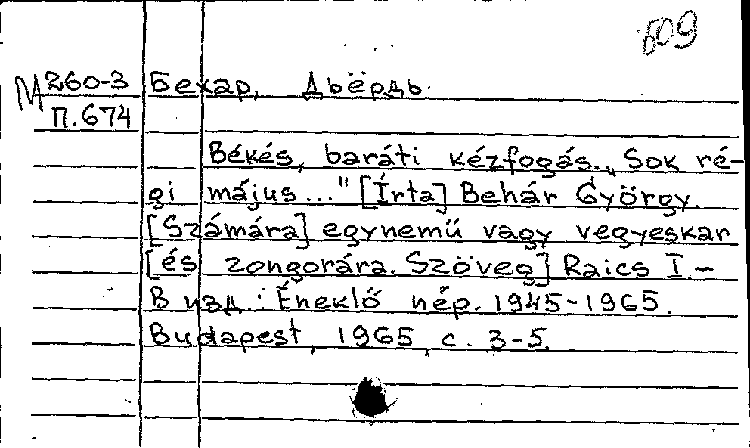 609
М 260-3 Бехар, Дьёрдь.
П.674
Békés, baráti kézfogás. „Sok ré-
gi május..." [Írta] Behár György.
[Számára] egynemű vagy vegyeskar
[és zongorára. Szöveg] Raics I. –
В изд.: Éneklő nép. 1945-1965.
Budapest, 1965, с. 3-5.